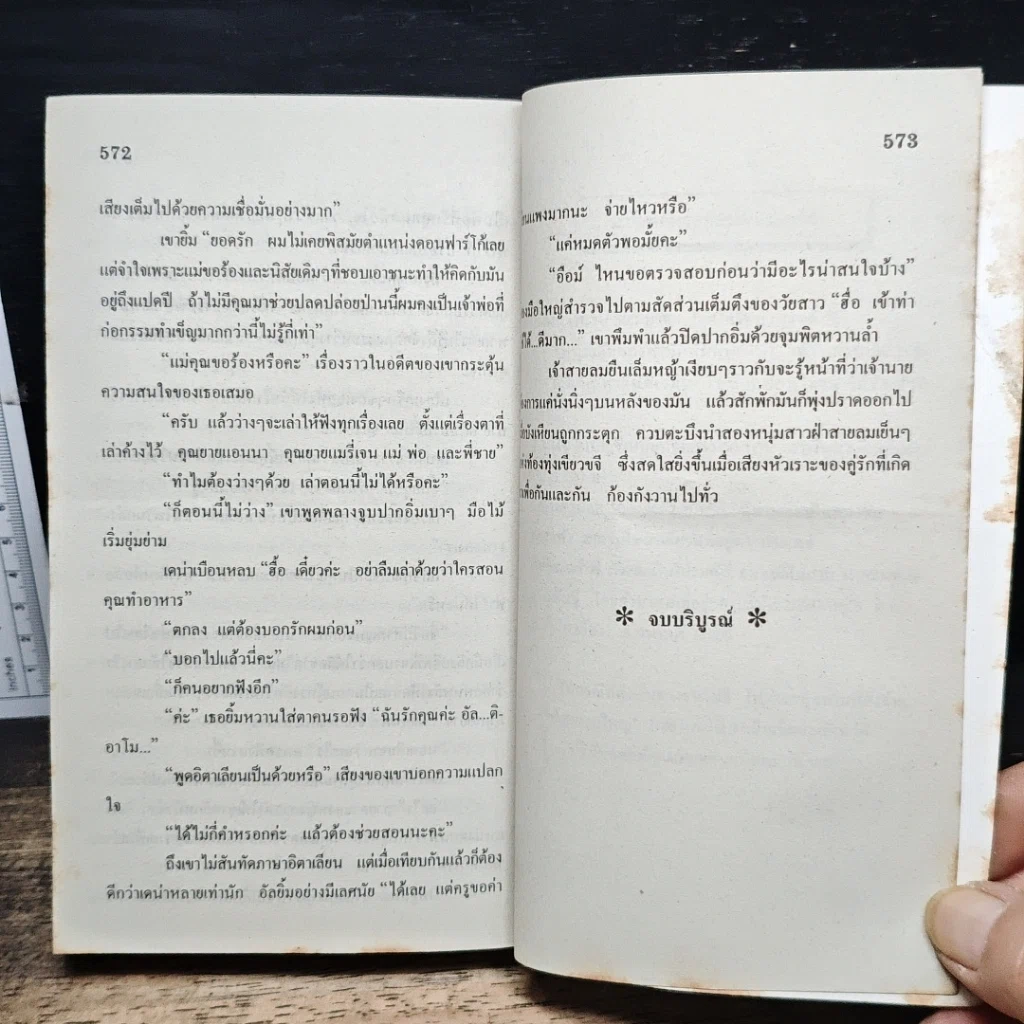 572
เสียงเต็มไปด้วยความเชื่อมั่นอย่างมาก”
เขายิ้ม “ยอดรัก ผมไม่เคยพิสมัยตำแหน่งดอนฟาร์โก้เลย
แต่จำใจเพราะแม่ขอร้องและนิสัยเดิมๆที่ชอบเอาชนะทำให้คิดกับมัน
อยู่ถึงแปดปี ถ้าไม่มีคุณมาช่วยปลดปล่อยป่านนี้ผมคงเป็นเจ้าพ่อที่
ก่อกรรมทำเข็ญมากกว่านี้ไม่รู้กี่เท่า”
“แม่คุณขอร้องหรือคะ” เรื่องราวในอดีตของเขากระตุ้น
ความสนใจของเธอเสมอ
“ครับ แล้วว่างๆจะเล่าให้ฟังทุกเรื่องเลย ตั้งแต่เรื่องตาที่
เล่าค้างไว้ คุณยายแอนนา คุณยายแมรี่เจน แม่ พ่อ และพี่ชาย”
“ทำไมต้องว่างๆด้วย เล่าตอนนี้ไม่ได้หรือคะ”
“ก็ตอนนี้ไม่ว่าง” เขาพูดพลางจูบปากอิ่มเบาๆ มือไม้
เริ่มยุ่มย่าม
เดน่าเบือนหลบ “ฮื้อ เดี๋ยวค่ะ อย่าลืมเล่าด้วยว่าใครสอน
คุณทำอาหาร”
“ตกลง แต่ต้องบอกรักผมก่อน”
“บอกไปแล้วนี่คะ”
“ก็คนอยากฟังอีก”
“ค่ะ” เธอยิ้มหวานใส่ตาคนรอฟัง “ฉันรักคุณค่ะ อัล...ติ-
อาโม...”
“พูดอิตาเลียนเป็นด้วยหรือ” เสียงของเขาบอกความแปลก
ใจ
“ได้ไม่กี่คำหรอกค่ะ แล้วต้องช่วยสอนนะคะ”
ถึงเขาไม่สันทัดภาษาอิตาเลียน แต่เมื่อเทียบกันแล้วก็ต้อง
ดีกว่าเดน่าหลายเท่านัก อัลยิ้มอย่างมีเลศนัย “ได้เลย แต่ครูขอค่า
573
แพงมากนะ จ่ายไหวหรือ”
“แค่หมดตัวพอมั้ยคะ”
“อือม์ ไหนขอตรวจสอบก่อนว่ามีอะไรน่าสนใจบ้าง”
มือใหญ่สำรวจไปตามสัดส่วนเต็มตึงของวัยสาว “ฮื่อ เข้าท่า
ดีมาก...” เขาพึมพำแล้วปิดปากอิ่มด้วยจุมพิตหวานล้ำ
เจ้าสายลมยืนเล็มหญ้าเงียบๆราวกับจะรู้หน้าที่ว่าเจ้านาย
การแค่นั่งนิ่งๆบนหลังของมัน แล้วสักพักมันก็พุ่งปราดออกไป
บังเหียนถูกกระตุก ควบตะบึงนำสองหนุ่มสาวฝ่าสายลมเย็นๆ
ท้องทุ่งเขียวขจี ซึ่งสดใสยิ่งขึ้นเมื่อเสียงหัวเราะของคู่รักที่เกิด
เพื่อกันและกัน ก้องกังวานไปทั่ว
* จบบริบูรณ์ *
inches